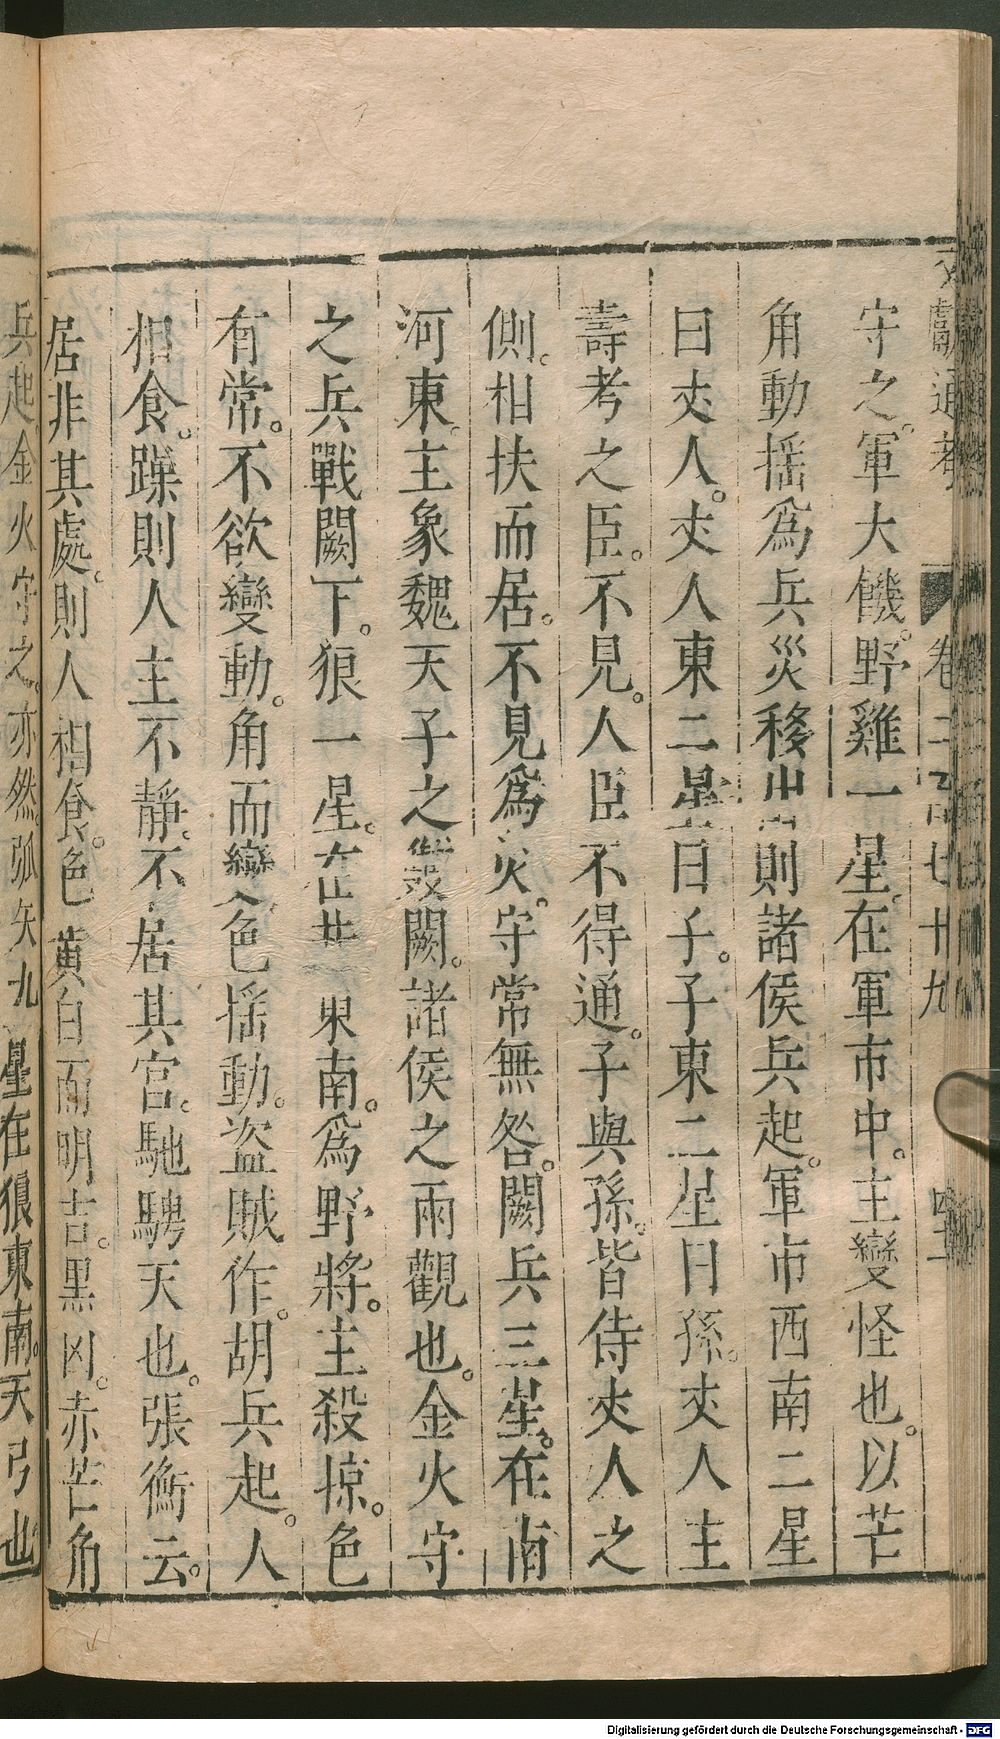 文獻通考 卷二百七十九
守之。軍大饑。野雞一星。在軍市中。主變怪也。以芒
角動揺爲兵災移出則諸侯兵起。軍市西南二星
曰丈人。丈人東二星曰子。子東二星曰孫。丈人主
壽考之臣。不見。人臣不得通。子與孫。皆侍丈人之
側。相扶而居。不見爲災。守常無咎。闕兵三星。在南
河東。主象魏天子之雙闕。諸侯之兩觀也。金火守
之兵戰闕下。狼一星。在井東南。爲野將。主殺掠。色
有常。不欲變動。角而變色揺動。盜賊作。胡兵起。人
相食。躁則人主不靜。不居其宮。馳騁天也。張衡云。
居非其處。則人相食。色黄白而明吉。黑凶。赤芒角
兵起金火守之。亦然弧矢九星在狼東南。天弓也
Digitalisierung gefördert durch die Deutsche Forschungsgemeinschaft - DFG